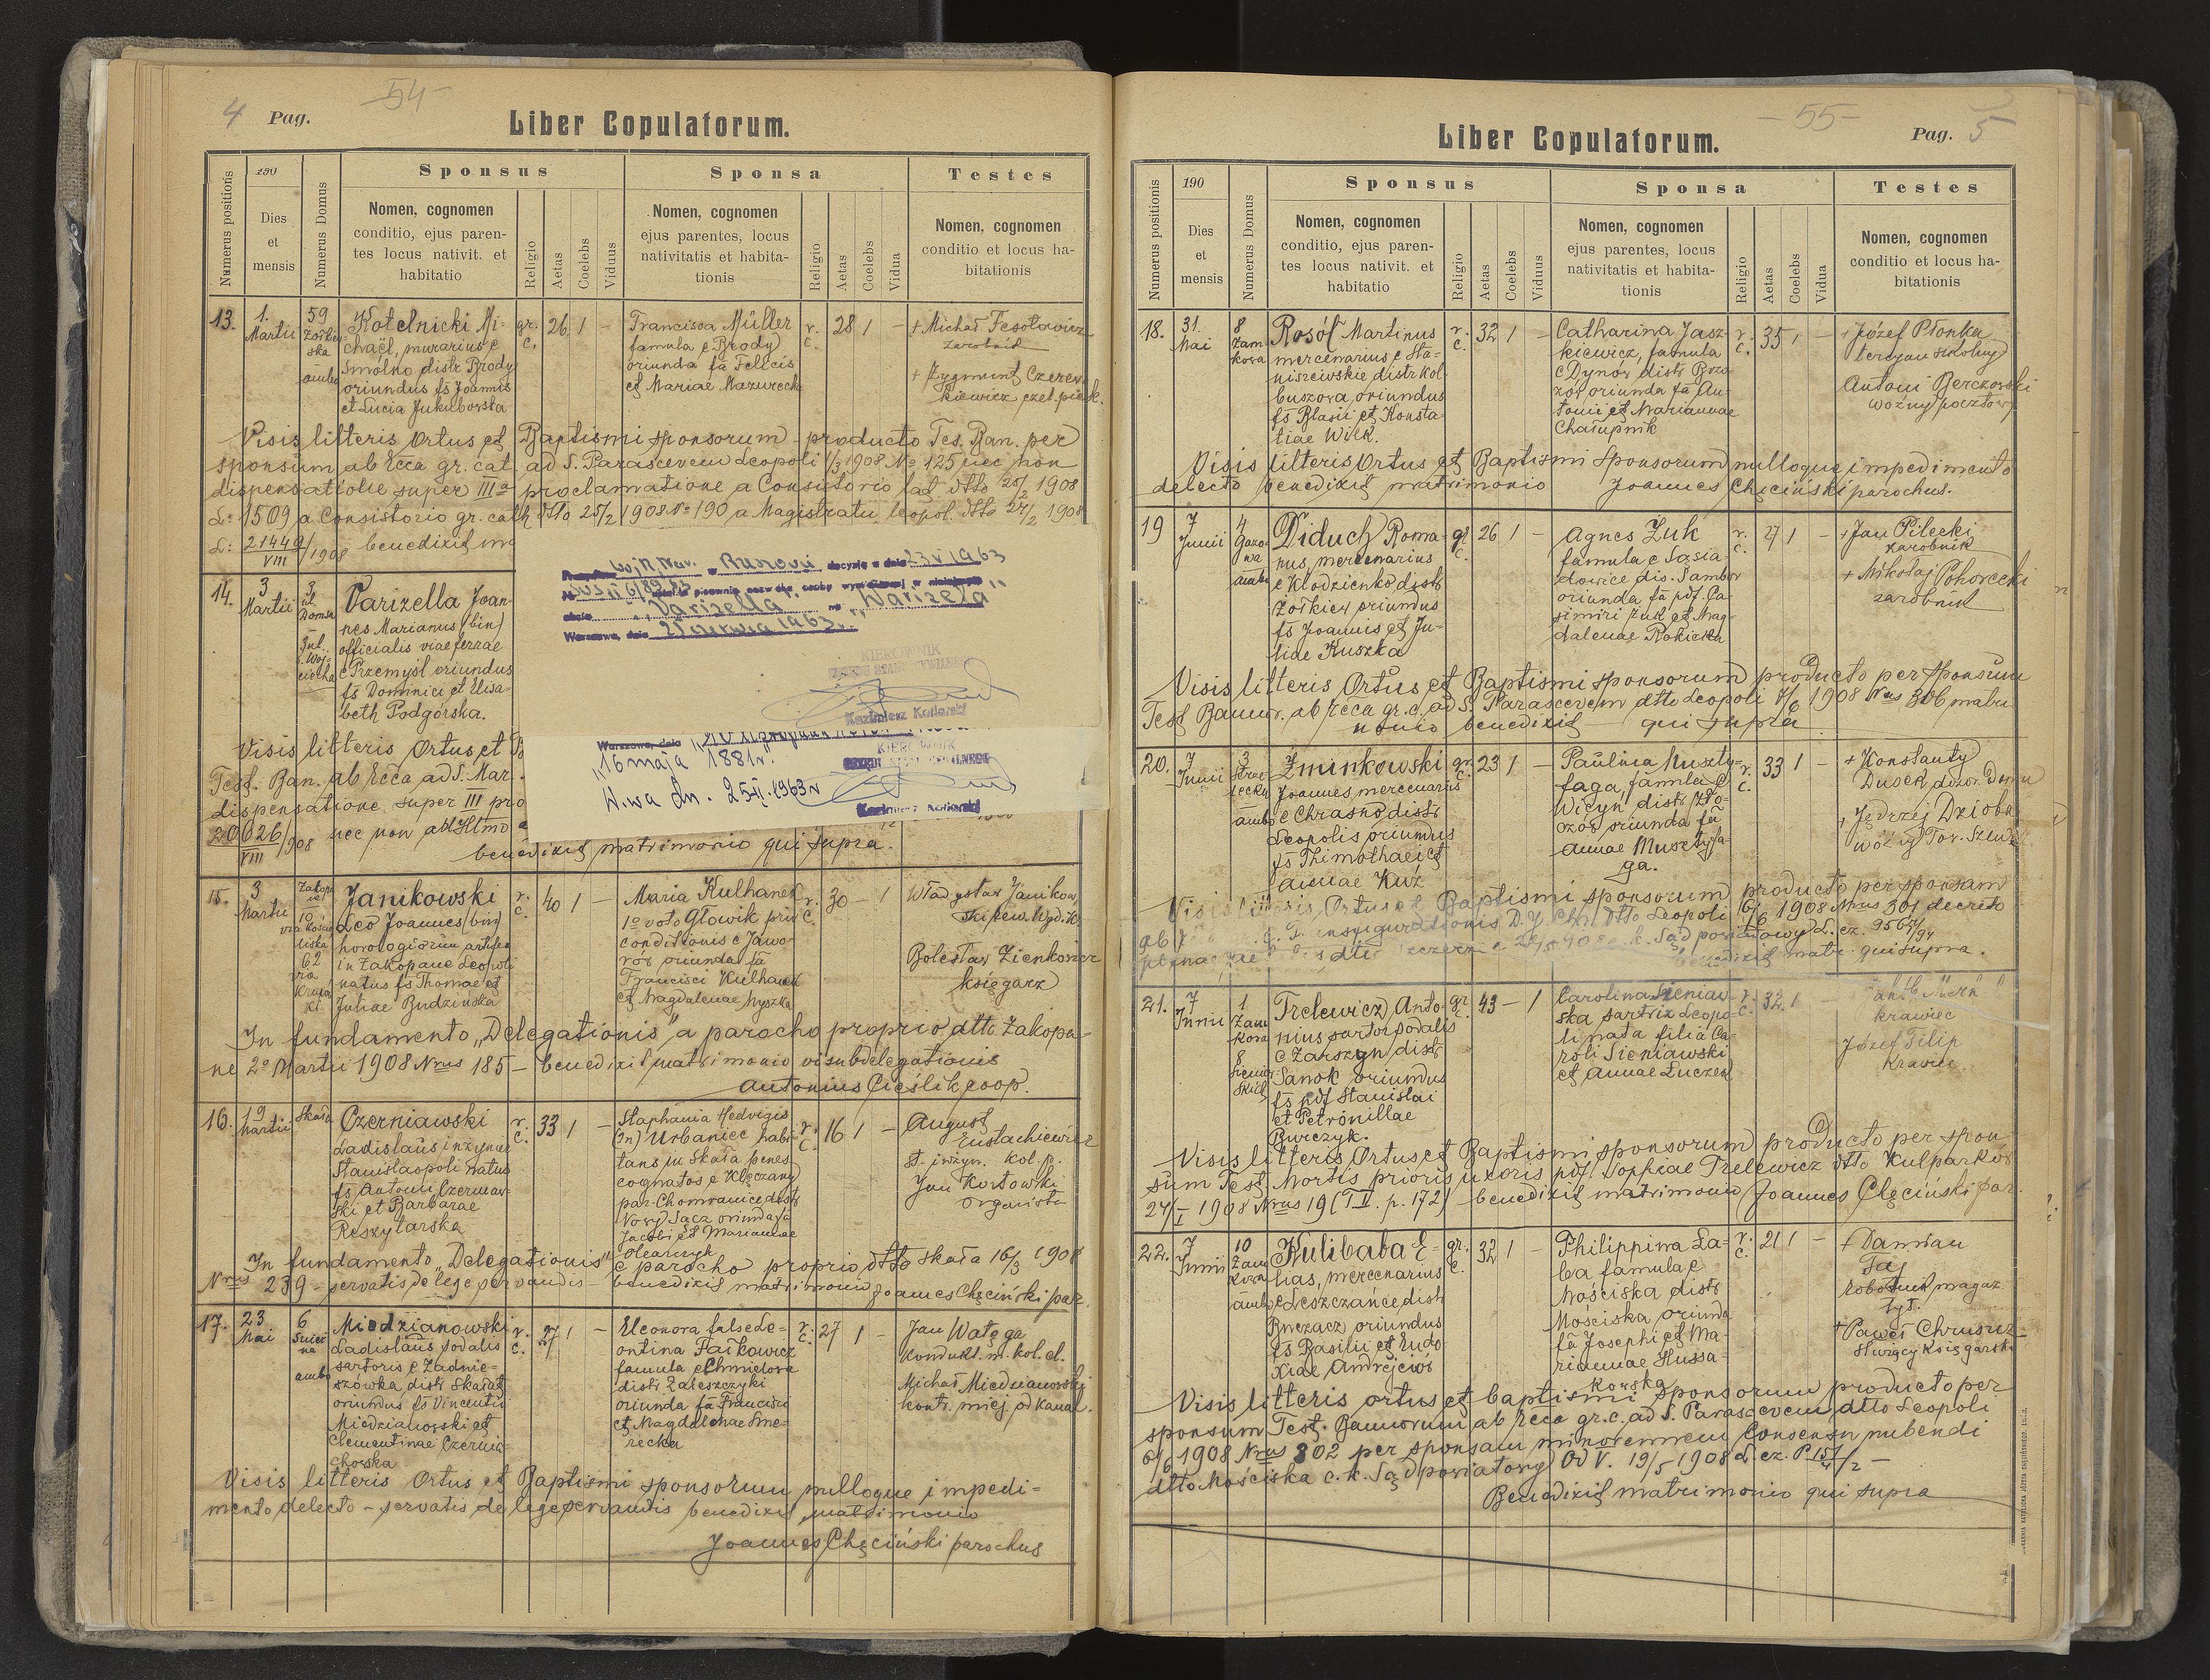 4 Pag.
-54-
Liber Copulatorum.
Numerus positionis
190
Dies
et
mensis
Numerus Domus
Sponsus
Nomen, cognomen
conditio, ejus paren-
tes locus nativit. et
habitatio
Religio
Aetas
Coelebs
Viduus
Sponsa
Nomen, cognomen
ejus parentes, locus
nativitatis et habita-
tionis
Religio
Aetas
Coelebs
Vidua
Testes
Nomen, cognomen
conditio et locus ha-
bitationis
13.
1.
Martii
59
ambo
Kotelnicki Mi-
chaël, murarius e
Smolno distr Brody
oriundus fs Joannis
et Lucia Jakubowska
gr. c.
26 1 -
Francisca Müller
famula e Brody
oriunda fa Felicis
et Mariae Mazurecka
r. c.
28 1 -
+ Michał Fesołowicz
zarobnik
+ Zygmunt Czerew
kiewicz czel. piek.
Visis litteris Ortus et Baptismi sponsorum - producto Tes. Ban. per
sponsum ab Ecca gr. cat. ad S. Parascevem Leopoli 1/3 1908 No 125 nec non
dispensatione super IIIa proclamatione a Consistorio lat dtto 25/2 1908
L: 1509 a Consistorio gr. cath dtto 25/2 1908 No 190 a Magistratu leopol. dtto 27/2 1908
L: 21449/VIII /1908 benedixit m
14.
3
Martii
Varizella Joan-
nes Marianus (bin)
officialis viae ferrae
e Przemyśl oriundus
fs Dominici et Elisa-
beth Podgórska.
w Rzeszowie decyzją z dnia 23 V 1963
Varizella na "Warizela"
Warszawa, dnia 21 czerwca 1963 r.
KIEROWNIK
URZĘDU STANU CYWILNEGO
Kazimierz Kotlarski
Warszawa, dnia
"16 maja 1881 r."
W.wa dn. 25 II. 1963 r
KIEROWNIK
Kazimierz Kotlarski
Visis litteris Ortus et B
Test. Ban. ab Ecca ad S. Mar.
dispensatione super III pro
20626/VIII /908 nec non ab Illmo
benedixit matrimonio qui supra.
15.
3
Martii
Janikowski
Leo Joannes (bin)
horologiorum artifex
in Zakopane Leopoli
natus fs Thomae et
Juliae Budzińska
r. c.
40 1 -
Maria Kulhanek
1o voto Głowik priv
conditionis e Jawo-
rów oriunda fa
Francisci Kulhanek
et Magdalenae Myszka
r. c.
30 - 1
Władysław Janikow
ski
Bolesław Zienkowicz
księgarz
In fundamento "Delegationis" a parocho proprio dtto Zakopa-
ne 2o Martii 1908 Nrus 185 - benedixit matrimonio vi subdelegationis
Antonius Cieślik coop.
16.
19
Martii
Skała
Czerniawski
Ladislaus inżynier
Stanislaopoli natus
fs Antoni Czerniaw-
ski et Barbarae
Reszytarska
r. c.
33 1 -
Stephania Hedvigis
(bn) Urbaniec habi-
tans in Skała penes
cognatos e Klęczany
par. Chomranice distr
Nowy Sącz oriunda fa
Jacobi et Mariannae
Olearczyk
r. c.
16 1 -
August
Eustachiewicz
st. inżyn. kol. p.
Jan Kosłowski
organista
In fundamento "Delegationis" e parocho proprio dtto Skała 16/3 1908
Nrus 239 - servatis de lege servandis - benedixit matrimonio Joannes Chęciński par.
17.
23
Mai
6
ambo
Miedzianowski
Ladislaus sodalis
sartoris e Zadnie-
szówka distr Skałat
oriundus fs Vincentii
Miedzianowski et
Clementinae Czernia-
chowska
r. c.
27 1 -
Eleonora false Le-
ontina Faikowicz
famula e Chmielowa
distr Zaleszczyki
oriunda fa Francisci
et Magdalenae Sme-
recka
r. c.
27 1 -
Jan Watęga
kondukt. m. kol. el.
Michał Miedzianowski
kontr. miej. od kanal.
Visis litteris Ortus et Baptismi sponsorum nulloque impedi-
mento delecto - servatis de lege servandis benedixit matrimonio
Joannes Chęciński parochus
-55-
Liber Copulatorum.
Pag. 5
Numerus positionis
190
Dies
et
mensis
Numerus Domus
Sponsus
Nomen, cognomen
conditio, ejus paren-
tes locus nativit. et
habitatio
Religio
Aetas
Coelebs
Viduus
Sponsa
Nomen, cognomen
ejus parentes, locus
nativitatis et habita-
tionis
Religio
Aetas
Coelebs
Vidua
Testes
Nomen, cognomen
conditio et locus ha-
bitationis
18.
31.
Mai
8
Zam
kowa
Rosół Martinus
mercenarius e Sta-
niszewskie distr Kol-
buszowa, oriundus
fs Blasii et Konsta-
tiae Wilk.
r. c.
32 1 -
Catharina Jasz-
kiewicz, famula
e Dynów distr Brzo-
zów oriunda fa An-
tonii et Mariannae
Chałupnik
r. c.
35 1 -
+ Józef Płonka
tercyan szkolny
Antoni Berczowski
woźny pocztowy
Visis litteris Ortus et Baptismi sponsorum nulloque impedimento
delecto benedixit matrimonio Joannes Chęciński parochus.
19
7
Junii
4
Gazo-
wa
ambo
Diduch Roma-
nus, mercenarius
e Kłodzienko distr
Żołkiew oriundus
fs Joannis et Ju-
liae Kuszka
gr c.
26 1 -
Agnes Żuk
famula e Sąsia-
dowice dis. Sambor
oriunda fa pdf. Ca-
simiri Żuk et Mag-
dalenae Rokicka
r. c.
27 1 -
+ Jan Pilecki
zarobnik
+ Mikołaj Pohorecki
zarobnik
Visis litteris Ortus et Baptismi sponsorum producto per sponsum
Test Bannor. ab Ecca gr. c. ad S. Parascevem dtto Leopoli 7/6 1908 Nrus 306 matri-
monio benedixit qui supra
20.
7
Junii
3
Strze-
lecka
ambo
Żminkowski
Joannes mercenarius
e Chrasno distr
Leopolis oriundus
fs Thimothaei et
Annae Kuź
gr. c.
23 1 -
Paulina Muszty-
faga, famula e
Wicyń distr Zło-
czów oriunda fa
Annae Musztyfa-
ga.
r. c.
33 1 -
+ Konstanty
Dusek
Jędrzej Dzioba
woźny Tow.
Baptismi sponsorum producto per sponsam
1908 Nrus 301 decreto
Sąd powiatowy
benedixit matr. qui supra.
21.
7
Junii
1
Zam
kowa
8
Trelewicz Anto-
nius sartor sodalis
e Zarszyn distr
Sanok oriundus
fs pdf Stanislai
et Petronillae
Burczyk.
gr c.
43 - 1
Carolina Sieniaw-
ska sartrix Leopo-
li nata filia Ca-
roli Sieniawski
et Annae Luczek
r. c.
32 1 -
krawiec
Józef Filip
krawiec
Visis litteris Ortus et Baptismi sponsorum producto per spon-
sum Test. Mortis prioris uxoris pdf. Sophiae Trelewicz dtto Kulparków
24/I 1908 Nrus 19 (T II. p. 172) benedixit matrimonio Joannes Chęciński par.
22.
7
Junii
10
Zam
kowa
ambo
Kulibaba E-
lias, mercenarius
e Leszczańce distr
Buczacz oriundus
fs Basilii et Eudo-
xiae Andrejciów
gr. c.
32 1 -
Philippina La-
ba famula e
Mościska distr
Mościska oriunda
fa Josephi et Ma-
riannae Hussa-
kowska
r. c.
21 1 -
+ Damian
Faj
robotnik magaz.
tyt.
+ Paweł Chrusz-
służący księgarski
Visis litteris ortus et baptismi sponsorum producto per
sponsum Test. Bannorum ab Ecca gr. c. ad S. Parascevem dtto Leopoli
6/6 1908 Nrus 302 per sponsam minorennem Consensu nubendi
dtto Mościska c. k. Sąd powiatowy Od V. 19/5 1908 L. cz. P
Benedixit matrimonio qui supra